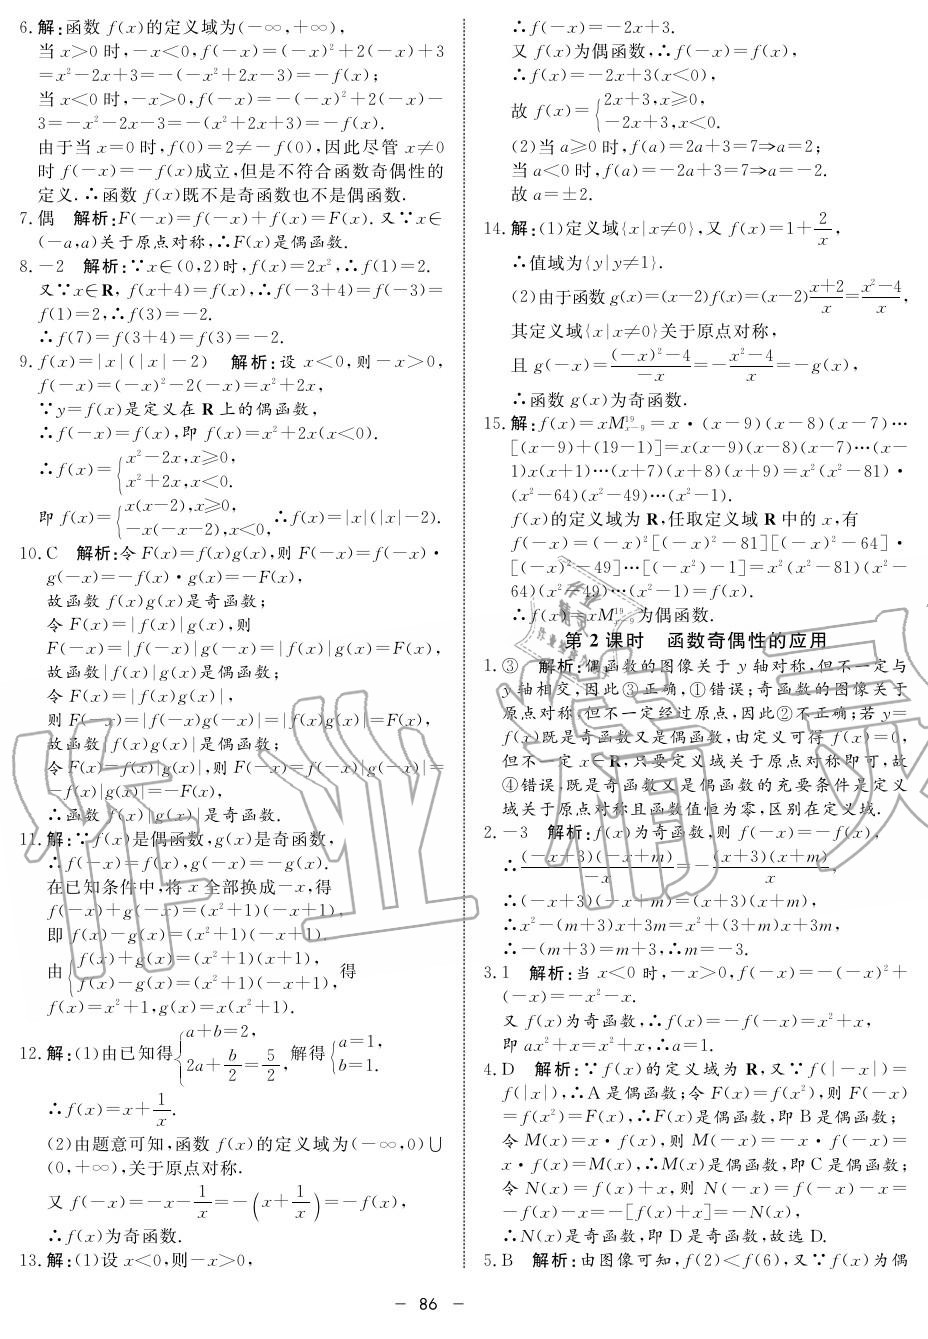 6.解:函数 f(x)的定义域为(-∞,+∞),
当 x>0 时,-x<0,f(-x)=(-x)²+2(-x)+3
=x²-2x+3=-(-x²+2x-3)=-f(x);
当 x<0 时,-x>0,f(-x)=-(-x)²+2(-x)-
3=-x²-2x-3=-(x²+2x+3)=-f(x).
由于当 x=0 时,f(0)=2≠-f(0),因此尽管 x≠0
时 f(-x)=-f(x)成立,但是不符合函数奇偶性的
定义.∴函数 f(x)既不是奇函数也不是偶函数.
7.偶 解析:F(-x)=f(-x)+f(x)=F(x).又∵x∈
(-a,a)关于原点对称,∴F(x)是偶函数.
8.-2 解析:∵x∈(0,2)时,f(x)=2x²,∴f(1)=2.
又∵x∈R, f(x+4)=f(x),∴f(-3+4)=f(-3)=
f(1)=2,∴f(3)=-2.
∴f(7)=f(3+4)=f(3)=-2.
9.f(x)=|x|(|x|-2) 解析:设 x<0,则-x>0,
f(-x)=(-x)²-2(-x)=x²+2x,
∵y=f(x)是定义在 R 上的偶函数,
∴f(-x)=f(x),即 f(x)=x²+2x(x<0).
∴f(x)={x²-2x,x≥0,
x²+2x,x<0.
即 f(x)={x(x-2),x≥0,
-x(-x-2),x<0, ∴f(x)=|x|(|x|-2).
10.C 解析:令 F(x)=f(x)g(x),则 F(-x)=f(-x)·
g(-x)=-f(x)·g(x)=-F(x),
故函数 f(x)g(x)是奇函数;
令 F(x)=|f(x)|g(x),则
F(-x)=|f(-x)|g(-x)=|f(x)|g(x)=F(x),
故函数|f(x)|g(x)是偶函数;
令 F(x)=|f(x)g(x)|,
则 F(-x)=|f(-x)g(-x)|=|f(x)g(x)|=F(x),
故函数|f(x)g(x)|是偶函数;
令 F(x)=f(x)|g(x)|,则 F(-x)=f(-x)|g(-x)|=
-f(x)|g(x)|=-F(x),
∴函数 f(x)|g(x)|是奇函数.
11.解:∵f(x)是偶函数,g(x)是奇函数,
∴f(-x)=f(x),g(-x)=-g(x).
在已知条件中,将 x 全部换成-x,得
f(-x)+g(-x)=(x²+1)(-x+1),
即 f(x)-g(x)=(x²+1)(-x+1).
由{f(x)+g(x)=(x²+1)(x+1),
f(x)-g(x)=(x²+1)(-x+1), 得
f(x)=x²+1,g(x)=x(x²+1).
12.解:(1)由已知得{a+b=2,
2a+b/2=5/2, 解得{a=1,
b=1.
∴f(x)=x+1/x.
(2)由题意可知,函数 f(x)的定义域为(-∞,0)∪
(0,+∞),关于原点对称.
又 f(-x)=-x-1/x=-(x+1/x)=-f(x),
∴f(x)为奇函数.
13.解:(1)设 x<0,则-x>0,
∴f(-x)=-2x+3.
又 f(x)为偶函数,∴f(-x)=f(x),
∴f(x)=-2x+3(x<0),
故 f(x)={2x+3,x≥0,
-2x+3,x<0.
(2)当 a≥0 时,f(a)=2a+3=7⇒a=2;
当 a<0 时,f(a)=-2a+3=7⇒a=-2.
故 a=±2.
14.解:(1)定义域{x|x≠0},又 f(x)=1+2/x,
∴值域为{y|y≠1}.
(2)由于函数 g(x)=(x-2)f(x)=(x-2)(x+2)/x=(x²-4)/x,
其定义域{x|x≠0}关于原点对称,
且 g(-x)=((-x)²-4)/(-x)=-(x²-4)/x=-g(x),
∴函数 g(x)为奇函数.
15.解:f(x)=xM¹⁹ₓ₋₉=x·(x-9)(x-8)(x-7)…
[(x-9)+(19-1)]=x(x-9)(x-8)(x-7)…(x-
1)x(x+1)…(x+7)(x+8)(x+9)=x²(x²-81)·
(x²-64)(x²-49)…(x²-1).
f(x)的定义域为 R,任取定义域 R 中的 x,有
f(-x)=(-x)²[(-x)²-81][(-x)²-64]·
[(-x)²-49]…[(-x²)-1]=x²(x²-81)(x²-
64)(x²-49)…(x²-1)=f(x).
∴f(x)=xM¹⁹ₓ₋₉为偶函数.
第 2 课时 函数奇偶性的应用
1.③ 解析:偶函数的图像关于 y 轴对称,但不一定与
y 轴相交,因此③正确,①错误;奇函数的图像关于
原点对称,但不一定经过原点,因此②不正确;若 y=
f(x)既是奇函数又是偶函数,由定义可得 f(x)=0,
但不一定 x∈R,只要定义域关于原点对称即可,故
④错误,既是奇函数又是偶函数的充要条件是定义
域关于原点对称且函数值恒为零,区别在定义域.
2.-3 解析:f(x)为奇函数,则 f(-x)=-f(x),
∴(-x+3)(-x+m)/(-x)=-(x+3)(x+m)/x,
∴(-x+3)(-x+m)=(x+3)(x+m),
∴x²-(m+3)x+3m=x²+(3+m)x+3m,
∴-(m+3)=m+3,∴m=-3.
3.1 解析:当 x<0 时,-x>0,f(-x)=-(-x)²+
(-x)=-x²-x.
又 f(x)为奇函数,∴f(x)=-f(-x)=x²+x,
即 ax²+x=x²+x,∴a=1.
4.D 解析:∵f(x)的定义域为 R,又∵f(|-x|)=
f(|x|),∴A 是偶函数;令 F(x)=f(x²),则 F(-x)
=f(x²)=F(x),∴F(x)是偶函数,即 B 是偶函数;
令 M(x)=x·f(x),则 M(-x)=-x·f(-x)=
x·f(x)=M(x),∴M(x)是偶函数,即 C 是偶函数;
令 N(x)=f(x)+x,则 N(-x)=f(-x)-x=
-f(x)-x=-[f(x)+x]=-N(x),
∴N(x)是奇函数,即 D 是奇函数,故选 D.
5.B 解析:由图像可知,f(2)<f(6),又∵f(x)为偶
- 86 -
作业精灵